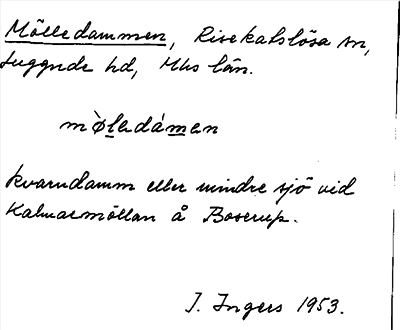 Mölledammen, Risekatslösa sn,
Luggude hd, Mhs län.
mø̀lədámən
Kvarndamm eller mindre sjö vid
Kalmarmöllan å Boserup.
I. Ingers 1953.